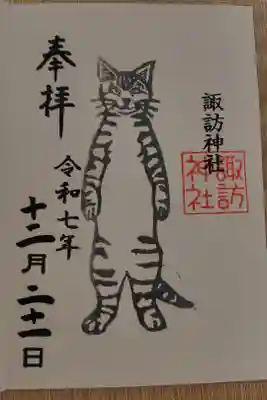 諏訪神社
諏訪
神社
奉拝
令和七年
十二月二十一日